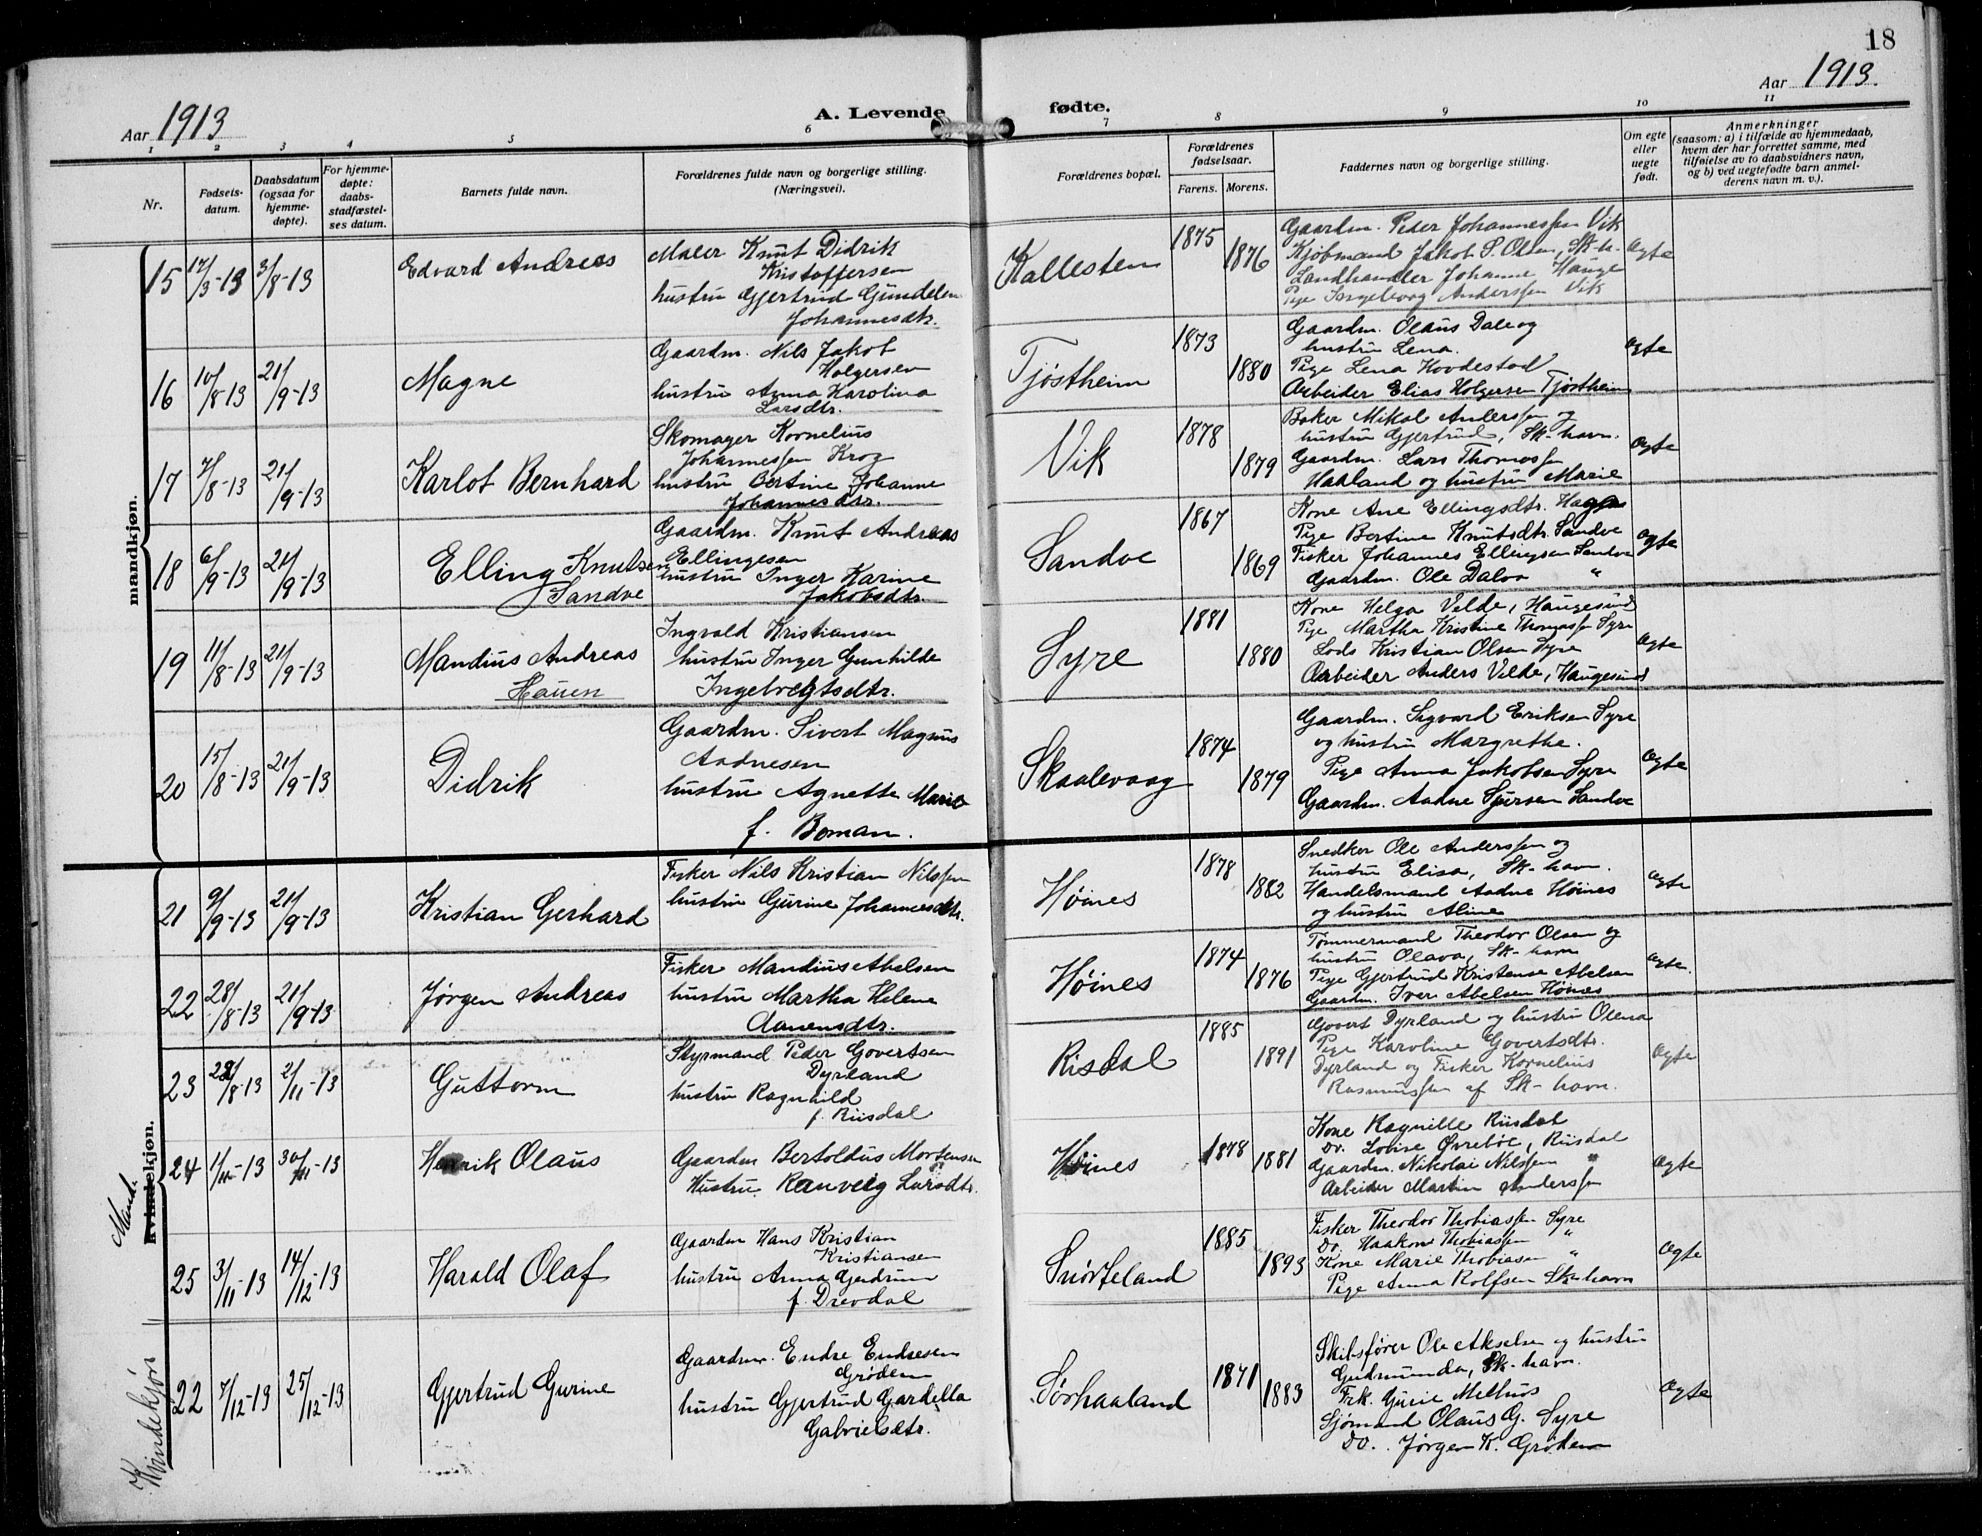 18
Aar 1913
A. Levende fødte.
Aar 1913.
1 2 3 4 5 6 7 8 9 10 11
Nr.
Fødselsdatum.
Daabsdatum (ogsaa for hjemmedøpte).
For hjemmedøpte: daabsstadfæstelses datum.
Barnets fulde navn.
Forældrenes fulde navn og borgerlige stilling.
(Næringsvei).
Forældrenes bopæl.
Forældrenes fødselsaar.
Farens. Morens.
Faddernes navn og borgerlige stilling.
Om egte eller uegte født.
Anmerkninger
(saasom: a) i tilfælde av hjemmedaab,
hvem der har forrettet samme, med
tilføielse av to daabsvidners navn,
og b) ved uegtefødte barn anmelderens navn m. v.).
mandkjøn.
15 17/3-13 3/8-13 Edvard Andreas
Maler Knut Didrik
Kristoffersen
hustru Gjertrud Gundelen
Johannesdtr.
Kallesten 1875 1876
Gaardm. Peder Johannessen Vik
Kjøbmand Jakob S. Olsen, Sk-h.
Landhandler Johanne Hauge
Pige Ingeborg Anderssen Vik
Ægte
16 10/8-13 21/9-13 Magne
Gaardm. Nils Jakob
Holgersen
hustru Anna Karolina
Larsdtr.
Tjøstheim 1873 1880
Gaardm. Olaus Dale og
hustru Lena.
Pige Lena Hovdestad
Arbeider Elias Holgersen Tjøstheim
Ægte
17 7/8-13 21/9-13 Karlot Bernhard
Skomager Kornelius
Johannessen Krog
hustru Bertine Johanne
Johannesdtr.
Vik 1878 1879
Baker Mikal Anderssen og
hustru Gjertrud, Sk-havn.
Gaardm. Lars Thomassen
Haaland og hustru Marie
Ægte
18 6/9-13 21/9-13 Elling Knutsen
Sandve
Gaardm. Knut Andreas
Ellingesen
hustru Inger Karine
Jakobsdtr.
Sandve 1867 1869
Kone Ane Ellingsdtr.
Pige Bertine Knutsdtr. Sandve
Fisker Johannes Ellingsen Sandve
Gaardm. Ole Dalva "
Ægte
19 11/8-13 21/9-13 Mandius Andreas
Hauen
Ingvald Kristiansen
hustru Inger Gunhilde
Ingebregtsdtr.
Syre 1881 1880
Kone Helga Velde, Haugesund
Pige Martha Kristine Thomassen Syre
Lods Kristian Olsen Syre
Arbeider Anders Velde, Haugesund
Ægte
20 15/8-13 21/9-13 Didrik
Gaardm. Sivert Magnus
Aadnesen
hustru Agnette Marie
f. Boman.
Skaalevaag 1874 1879
Gaardm. Sigvard Eriksen Syre
og hustru Margrethe.
Pige Anna Jakobsen Syre
Gaardm. Aadne Sjursen Sandve
Ægte
Mand.
kvindekjøn.
21 9/9-13 21/9-13 Kristian Gerhard
Fisker Nils Kristian Nilssen
hustru Gurine Johannesdtr.
Høines 1878 1882
Snedker Ole Anderssen og
hustru Elisa, Sk-havn.
Handelsmand Aadne Høines
og hustru Aline
Ægte
22 28/8-13 21/9-13 Jørgen Andreas
Fisker Mandius Abelsen
hustru Martha Helene
Aanensdtr.
Høines 1874 1876
Tømmermand Theodor Olsen og
hustru Olava, Sk-havn
Pige Gjertrud Kristense Abelsen
Gaardm. Iver Abelsen Høines
Ægte.
23 22/8-13 2/11-13 Guttorm
Styrmand Peder Govertsen
Dyrland
hustru Ragnhild
f. Riisdal
Risdal 1885 1891
Govert Dyrland og hustru Olena
Pige Karoline Govertsdtr.
Dyrland og Fisker Kornelius
Rasmussen af Sk-havn.
Ægte
24 1/10-13 30/11-13 Henrik Olaus
Gaardm Bertoldus Mortensen
Hustru Ranveig Larsdtr.
Høines 1878 1881
Kone Ragnille Riisdal
Do. Lovise Øvrebø, Riisdal
Gaardm. Nikolai Nilssen "
Arbeider Martin Anderssen
Ægte
25 3/11-13 14/12-13 Harald Olaf
Gaardm Hans Kristian
Kristiansen
hustru Anna Gudrun
f. Drevdal
Snørteland 1885 1893
Fisker Theodor Thobiassen Syre
Do. Haakon Thobiassen "
Kone Marie Thobiasen "
Pige Anna Rolfsen Sk-havn
Ægte
Kvindekjøn "
22 7/12-13 25/12-13 Gjertrud Gurine
Gaardm. Endre Endresen
Grødem
hustru Gjertrud Gardella
Gabrielsdtr.
Sørhaaland 1871 1883
Skibsfører Ole Akselsen og hustru
Gudmunda, Sk-havn.
Frk. Gurie Melhus
Sjømand Olaus G. Syre
Do. Jørgen K. Grødem
Ægte